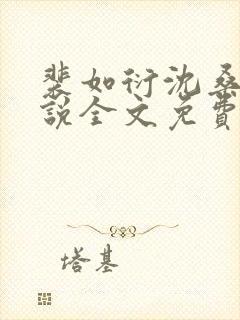 裴如衍沈桑
说全文免费
塔基